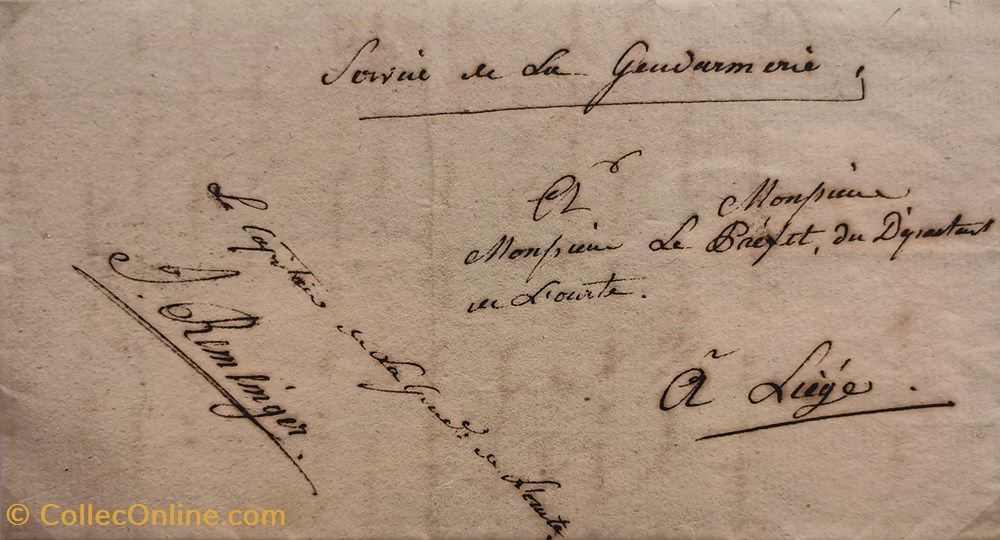 Service de La Gendarmerie,
A Monsieur
Monsieur Le Préfet, du Département
de L'ourte.
À Liége.
Le Capitaine de La Gend.ie de L'ourte,
J. Remlinger.
© CollecOnline.com